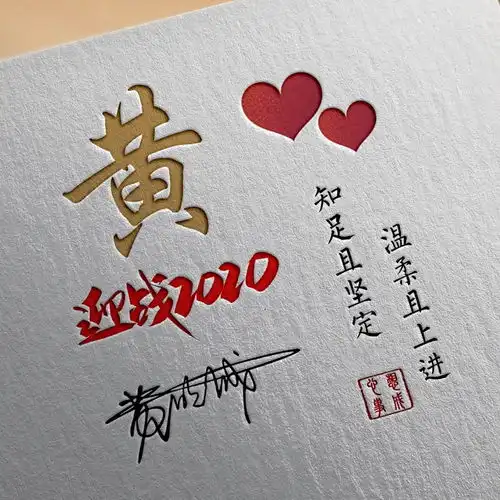 黄
迎战2020
温柔且上进
知足且坚定
心想
事成